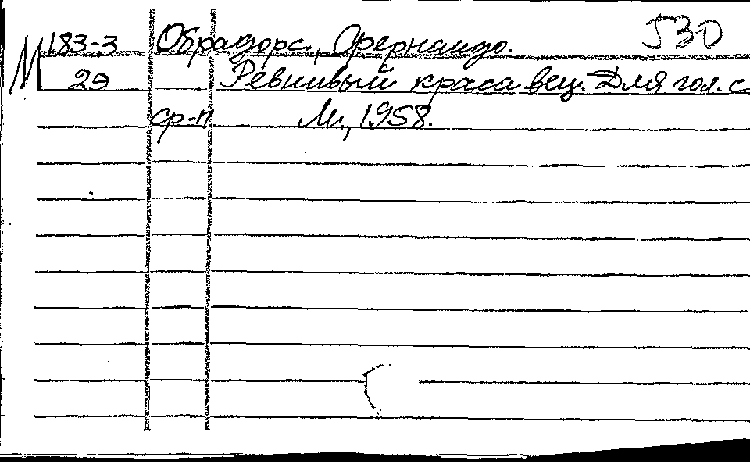 М 183-3 Обрадорс, Фернандо. 530
29 Ревнивый красавец. Для гол. с
ср-п М., 1958.